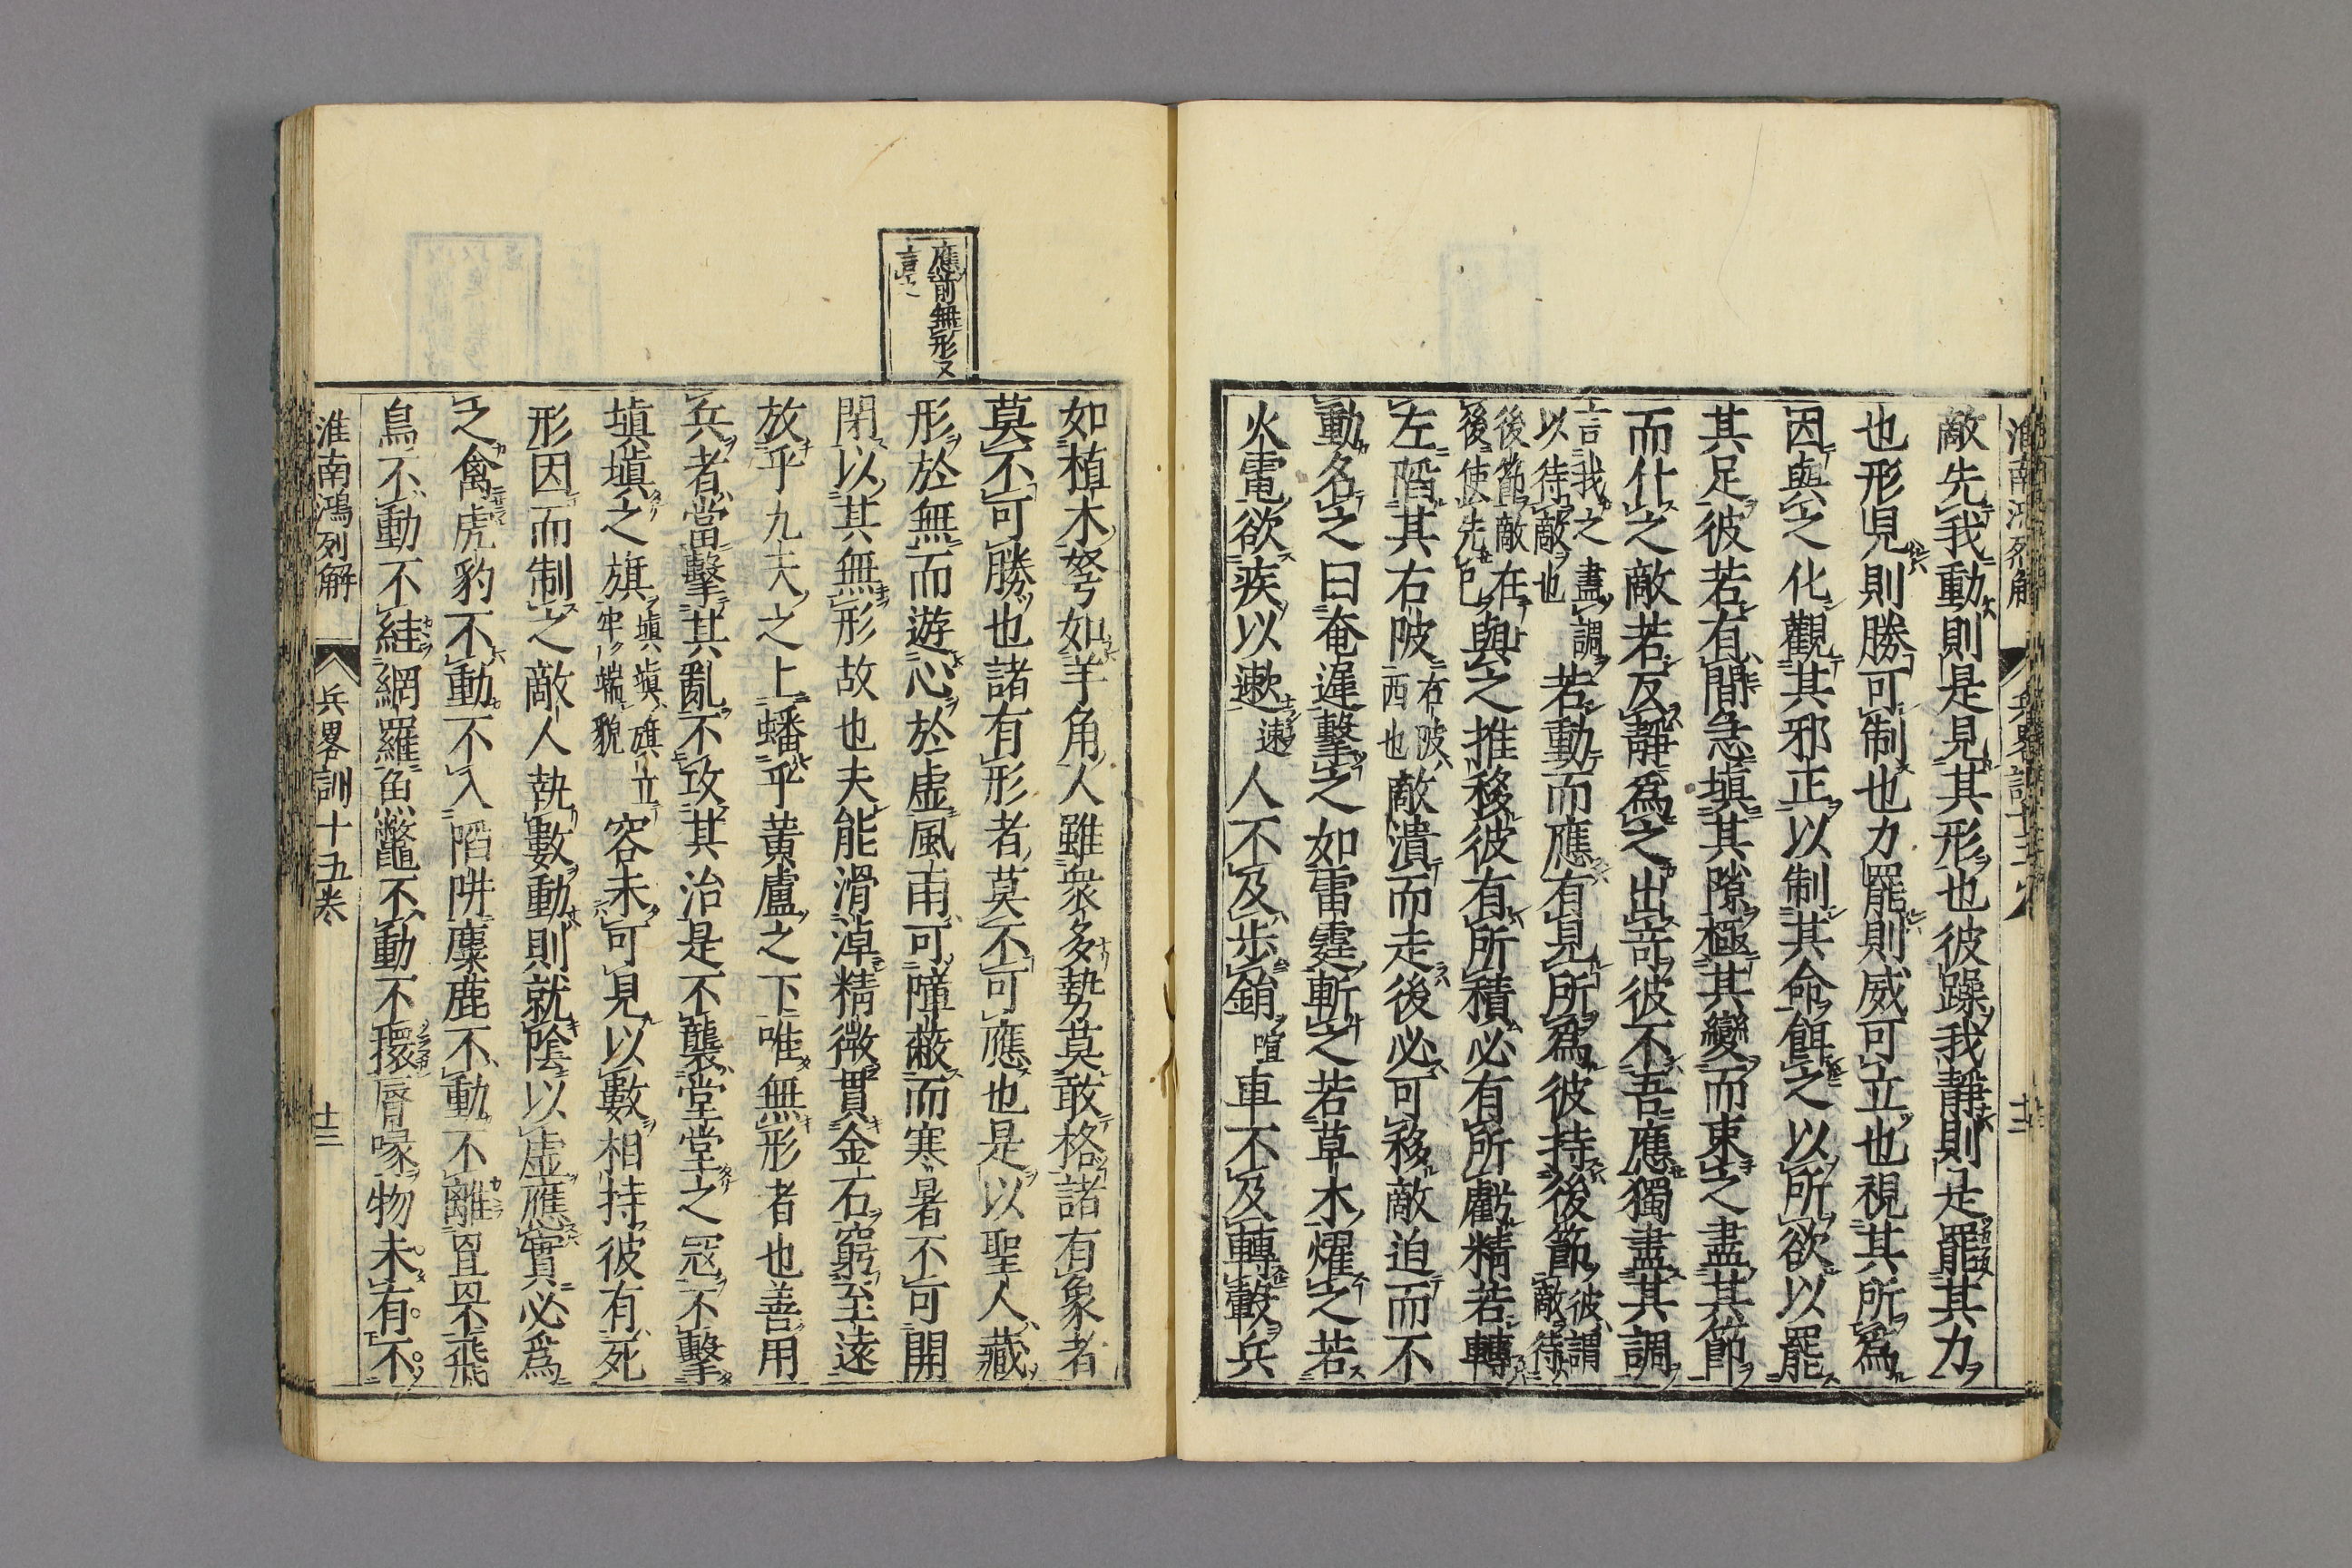 敵先我動則是見其形也彼躁我靜則是罷其力
也形見則勝可制也力罷則威可立也視其所爲
因與之化觀其邪正以制其命餌之以所欲以罷
其足彼若有間急填其隙極其變而束之盡其節
而仆之敵若反靜爲之出奇彼不吾應獨盡其調
言我之盡調
以待敵也
若動而應有見所爲彼持後節
彼謂
敵待
後節敵在
後使先己
與之推移彼有所積必有所虧精若轉
左陷其右陂
右陂
西也
敵潰而走後必可移敵迫而不
動名之曰奄遲擊之如雷霆斬之若草木燿之若
火電欲疾以遬
速
人不及步鋗
喧
車不及轉轂兵
應前無形又
言之
如植木弩如羊角人雖衆多勢莫敢格諸有象者
莫不可勝也諸有形者莫不可應也是以聖人藏
形於無而遊心於虚風雨可障蔽而寒暑不可開
閉以其無形故也夫能滑淖精微貫金石窮至遠
放乎九天之上蟠乎黄盧之下唯無形者也善用
兵者當擊其亂不攻其治是不襲堂堂之冦不擊
填填之旗
填填旗立
牢端貌
容未可見以數相持彼有死
形因而制之敵人執數動則就陰以虚應實必爲
之禽虎豹不動不入陷阱麋鹿不動不離罝罘飛
鳥不動不絓網羅魚鼈不動不擐脣喙物未有不
淮南鴻列解
兵畧訓十五卷
十三